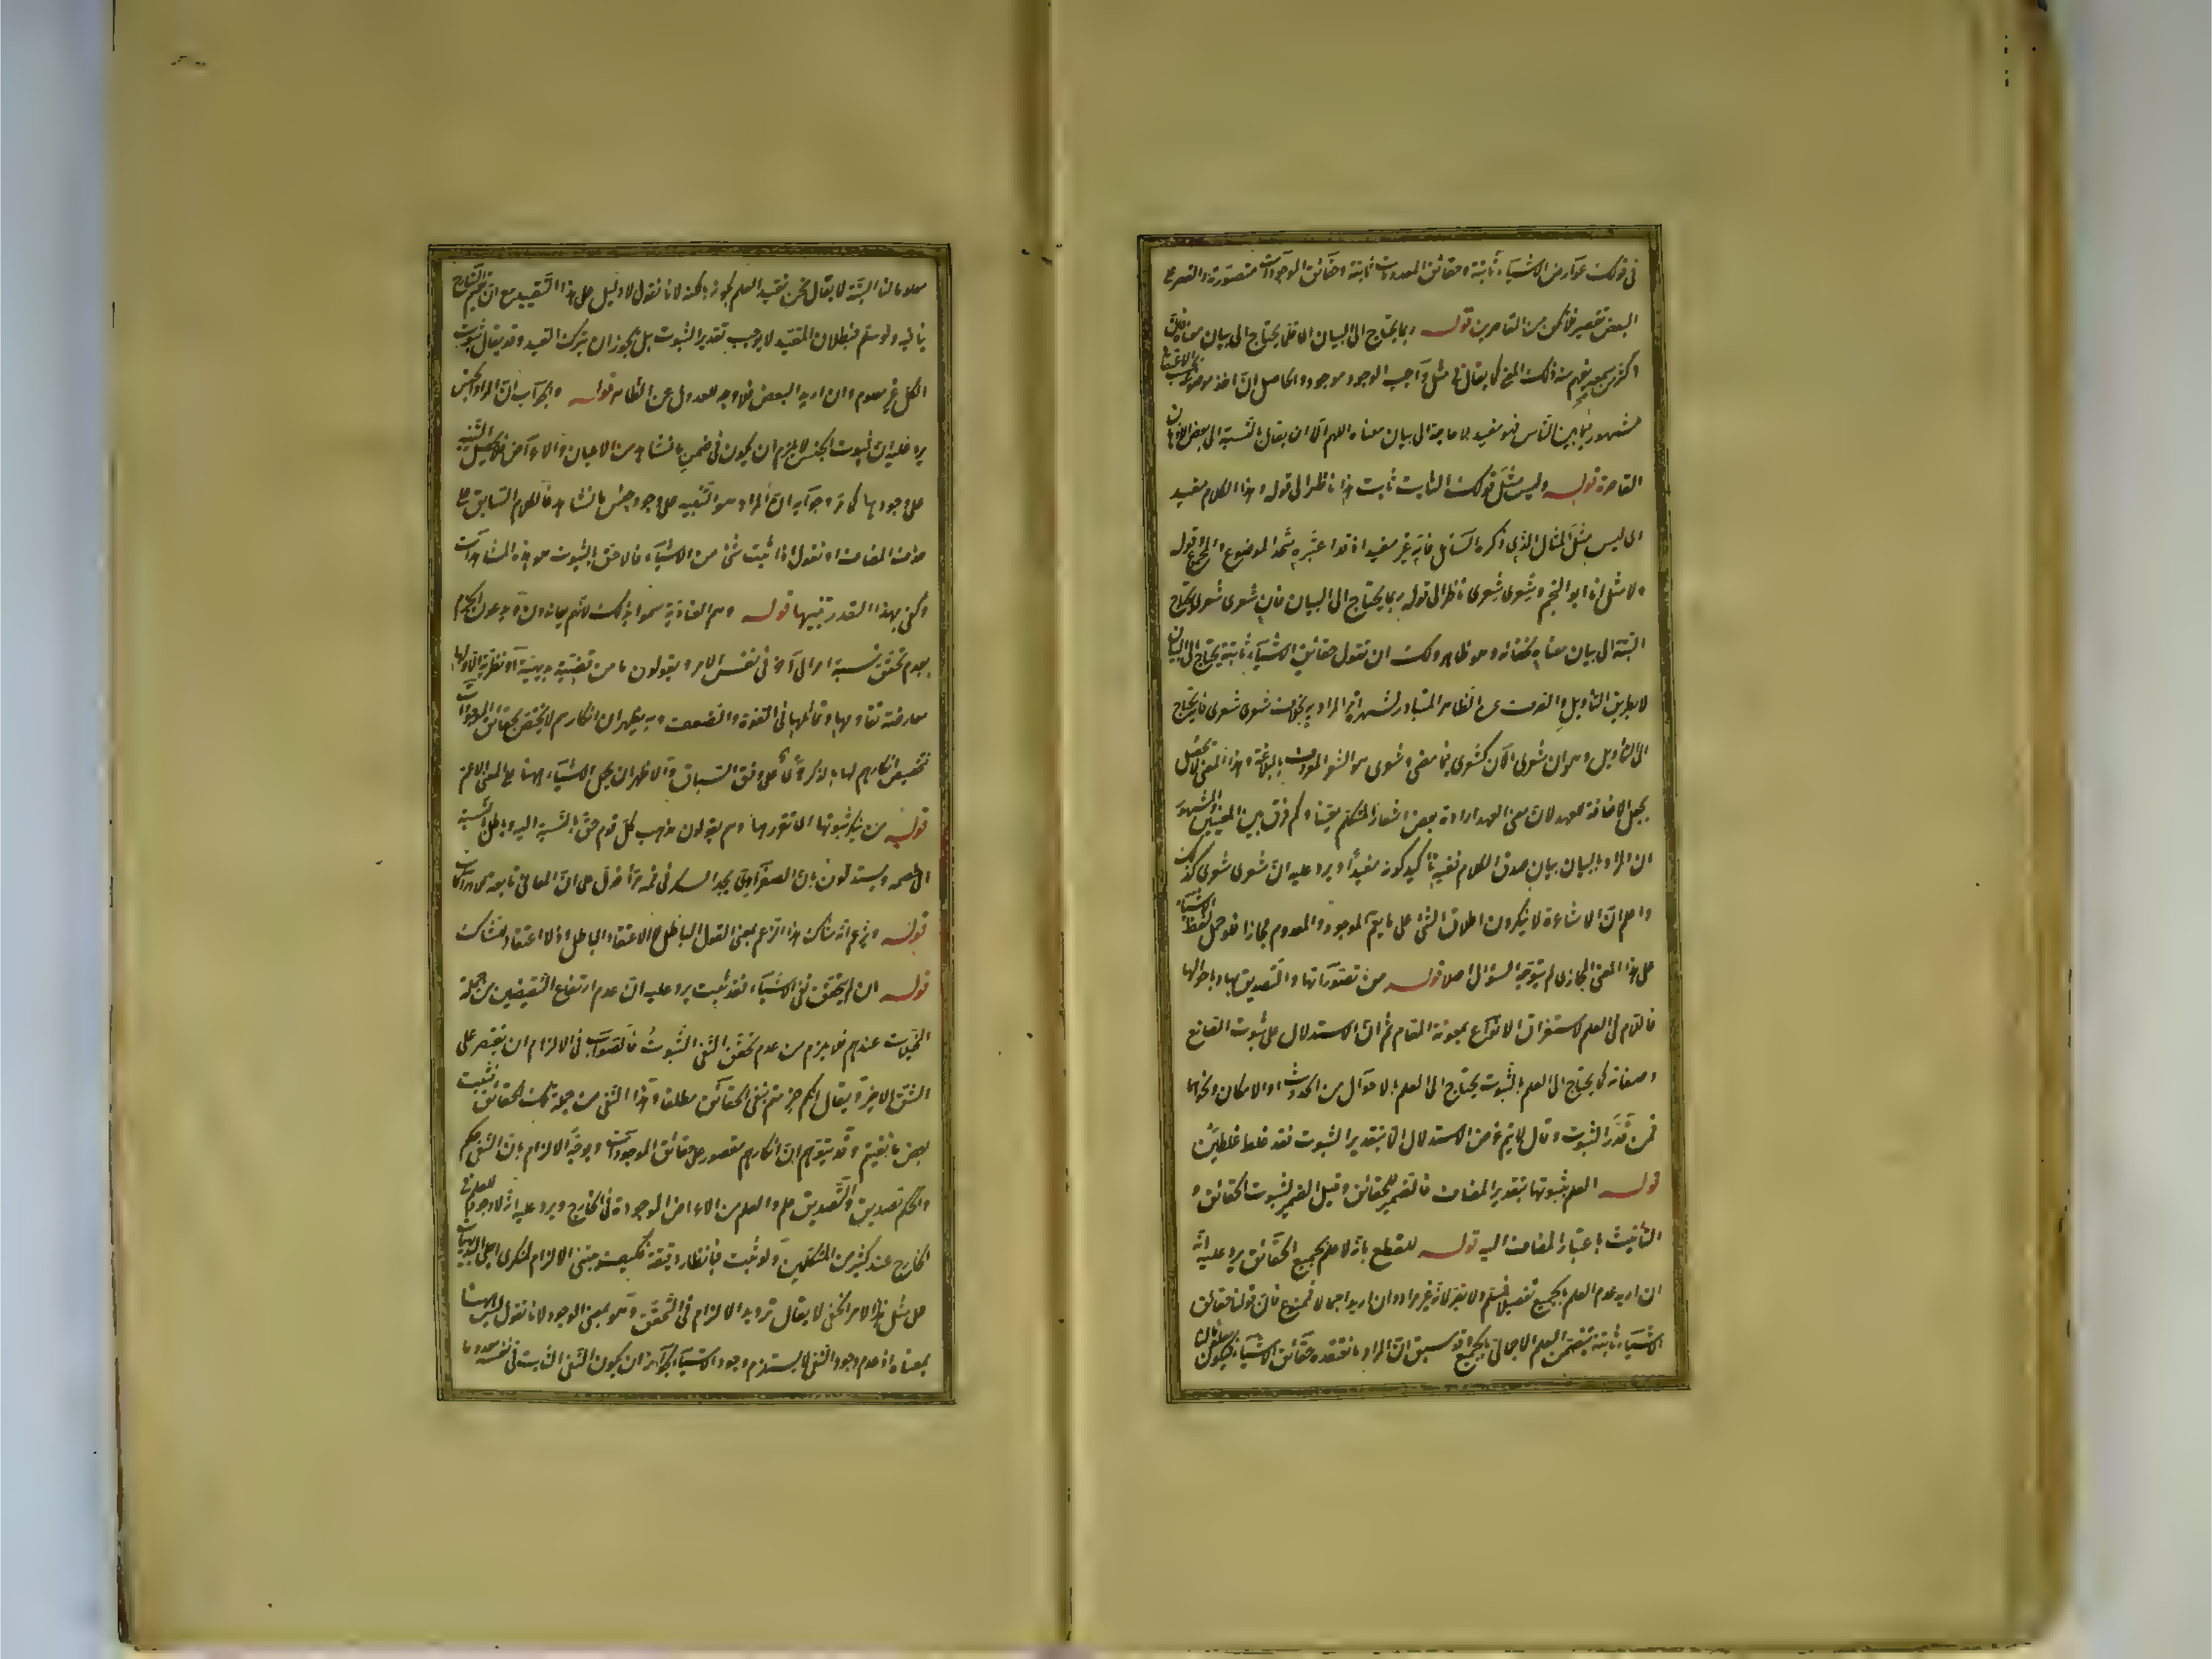 في قولك عوارض الاشياء ثابتة وحقائق المعدومات ثابتة وحقائق الموجودات متصورة والقصر على
البعض تقصير فلا تكن من القاصرين قوله ربما يحتاج الى البيان الا قلما يحتاج الى بيان معناه فان
اكثر من سمعه يفهم منه ذلك المعنى كما يقال في مثل واجب الوجود موجود والحاصل ان اخذ موضوع
مشهور فيما بين الناس فهو مفيد بلا حاجة الى بيان معناه اللهم الا ان يقال بالنسبة الى بعض الاذهان
القاصرة قوله وليس مثل قولك الثابت ثابت هذا ناظر الى قوله وهذا الكلام مفيد
اى ليس مثل المثال الذي ذكره السائل فانه غير مفيد اذ قد اعتبره متحد الموضوع والمحمول وقوله
ولا مثل انا ابو النجم وشعرى شعرى ناظر الى قوله ربما يحتاج الى البيان فان شعرى شعرى يحتاج
البتة الى بيان معناه لخفائه وهو ظاهر ولك ان تقول حقائق الاشياء ثابتة يحتاج الى البيان
لا بطريق التأويل والصرف عن الظاهر المتبادر لشهرة امر المراد به بخلاف شعرى شعرى فانه يحتاج
الى التأويل وهو ان شعرى الآن كشعرى فيما مضى وشعرى هو الشعر المعروف بالبلاغة وهذا المعنى لا يحصل
بجعل الاضافة للعهد لان معنى العهد ارادة بعض اشعار المتكلم يقينا وكم فرق بين المعنيين والمشهور
ان المراد بالبيان بيان صدق الكلام ففيه تأكيد كونه مفيدا ويرد عليه ان شعرى شعرى كذلك
واعلم ان الاشاعرة لا ينكرون اطلاق الشئ على ما يعم الموجود والمعدوم مجازا فلو حمل لفظ الاشياء
على هذا المعنى المجازى لم يتوجه السؤال اصلا قوله من تصوراتها والتصديق بها وباحوالها
فاللام في العلم لاستغراق الانواع بمعونة المقام ثم ان الاستدلال على ثبوت الصانع
وصفاته كما يحتاج الى العلم بالثبوت يحتاج الى العلم بالاحوال من الحدوث او الامكان ونحوهما
فمن قدر الثبوت وقال لا يتم غرض الاستدلال الا بتقدير الثبوت فقد غلط غلطين
قوله العلم بثبوتها بتقدير المضاف فالضمير للحقائق وقيل الضمير لثبوت الحقائق و
التأنيث باعتبار المضاف اليه قوله للقطع بانه لا علم بجميع الحقائق يرد عليه انه
ان اريد عدم العلم بالجميع تفصيلا فمسلم ولا يضر لانه غير مراد وان اريد اجمالا فممنوع فان قولنا حقائق
الاشياء ثابتة يتضمن العلم الاجمالي بالجميع وقد سبق ان المراد ما نعتقده حقائق الاشياء فيكون معلوما
معلوما لنا البتة لا يقال نحن نقيد العلم بكونه بالكنه لانا نقول لا دليل على هذا التقييد مع ان تعميم الشارح
ينافيه ولو سلم فبطلان المقيد لا يوجب تقدير الثبوت بل يجوز ان يترك القيد وقد يقال ثبوت
الكل غير معلوم وان اريد البعض فلا وجه للعدول عن الظاهر قوله والجواب ان المراد الجنس
يرد عليه ان ثبوت الجنس لا يلزم ان يكون في ضمن ما نشاهد من الاعيان والاعراض فلا يحصل التنبيه
على وجودها كما مر وجوابه ان المراد هو التنبيه على وجود جنس ما نشاهد فالكلام السابق على
حذف المضاف او نقول اذا ثبت شئ من الاشياء فالاحق بالثبوت هو هذه المشاهدات
وكفى بهذا القدر تنبيها قوله وهم العنادية سموا بذلك لانهم يعاندون ويدعون الجزم
بعدم تحقق نسبة امر الى آخر في نفس الامر ويقولون ما من قضية بديهية او نظرية الا ولها
معارضة تقاومها وتماثلها في القوة والضعف وبه يظهر ان انكارهم لا يختص بحقائق الموجودات
تخصيص انكارهم لها بالذكر على وفق السياق والاظهر ان يحمل الاشياء ههنا على المعنى الاعم
قوله من ينكر ثبوتها اى تقررها وهم يقولون مذهب كل قوم حق بالنسبة اليه وباطل بالنسبة
الى خصمه ويستدلون بان الصفراوى يجد السكر في فمه مرا فدل على ان المعاني تابعة للادراكات
قوله ويزعم انه شاك هذا الزعم بمعنى القول الباطل لا الاعتقاد الباطل اذ لا اعتقاد للشاك
قوله ان لم يتحقق نفى الاشياء فقد ثبت يرد عليه ان عدم ارتفاع النقيضين من جملة
المخيلات عندهم فلا يلزم من عدم تحقق النفى الثبوت فالصواب في الالزام ان يقتصر على
الشق الاخير ويقال انكم جزمتم بنفى الحقائق مطلقا وهذا النفى من جملة تلك الحقائق فثبت
بعض ما نفيتم وقد يتوهم ان انكارهم مقصور على حقائق الموجودات ويوجه الالزام بان النفى حكم
والحكم تصديق والتصديق علم والعلم من الاعراض الموجودة في الخارج ويرد عليه انه لا وجود للعلم في
الخارج عند كثير من المتكلمين ولو ثبت فبانظار دقيقة فكيف يبتنى الالزام لمنكرى اجلى البديهيات
على مثل هذا الامر الخفى لا يقال ترديد الالزام في التحقق وهو بمعنى الوجود لانا نقول ليس ههنا
بمعناه اذ عدم وجود النفى لا يستلزم وجود الاشياء لجواز ان يكون النفى الثابت في نفسه معدوما